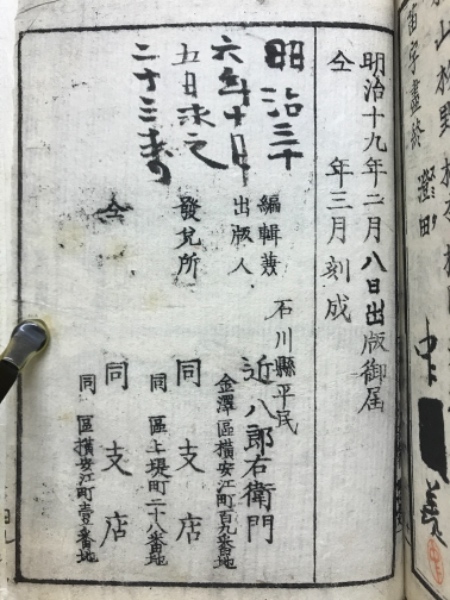 山
笛字盡於
澄田
明治十九年二月八日出版御届
仝 年三月刻成
石川縣平民
編輯兼
出版人 近八郎右衛門
金澤區横安江町百九番地
發兌所 同支店
同區上堤町二十八番地
仝 同支店
同區横安江町壹番地
明治三十
六年十月
五日求之
二十三才